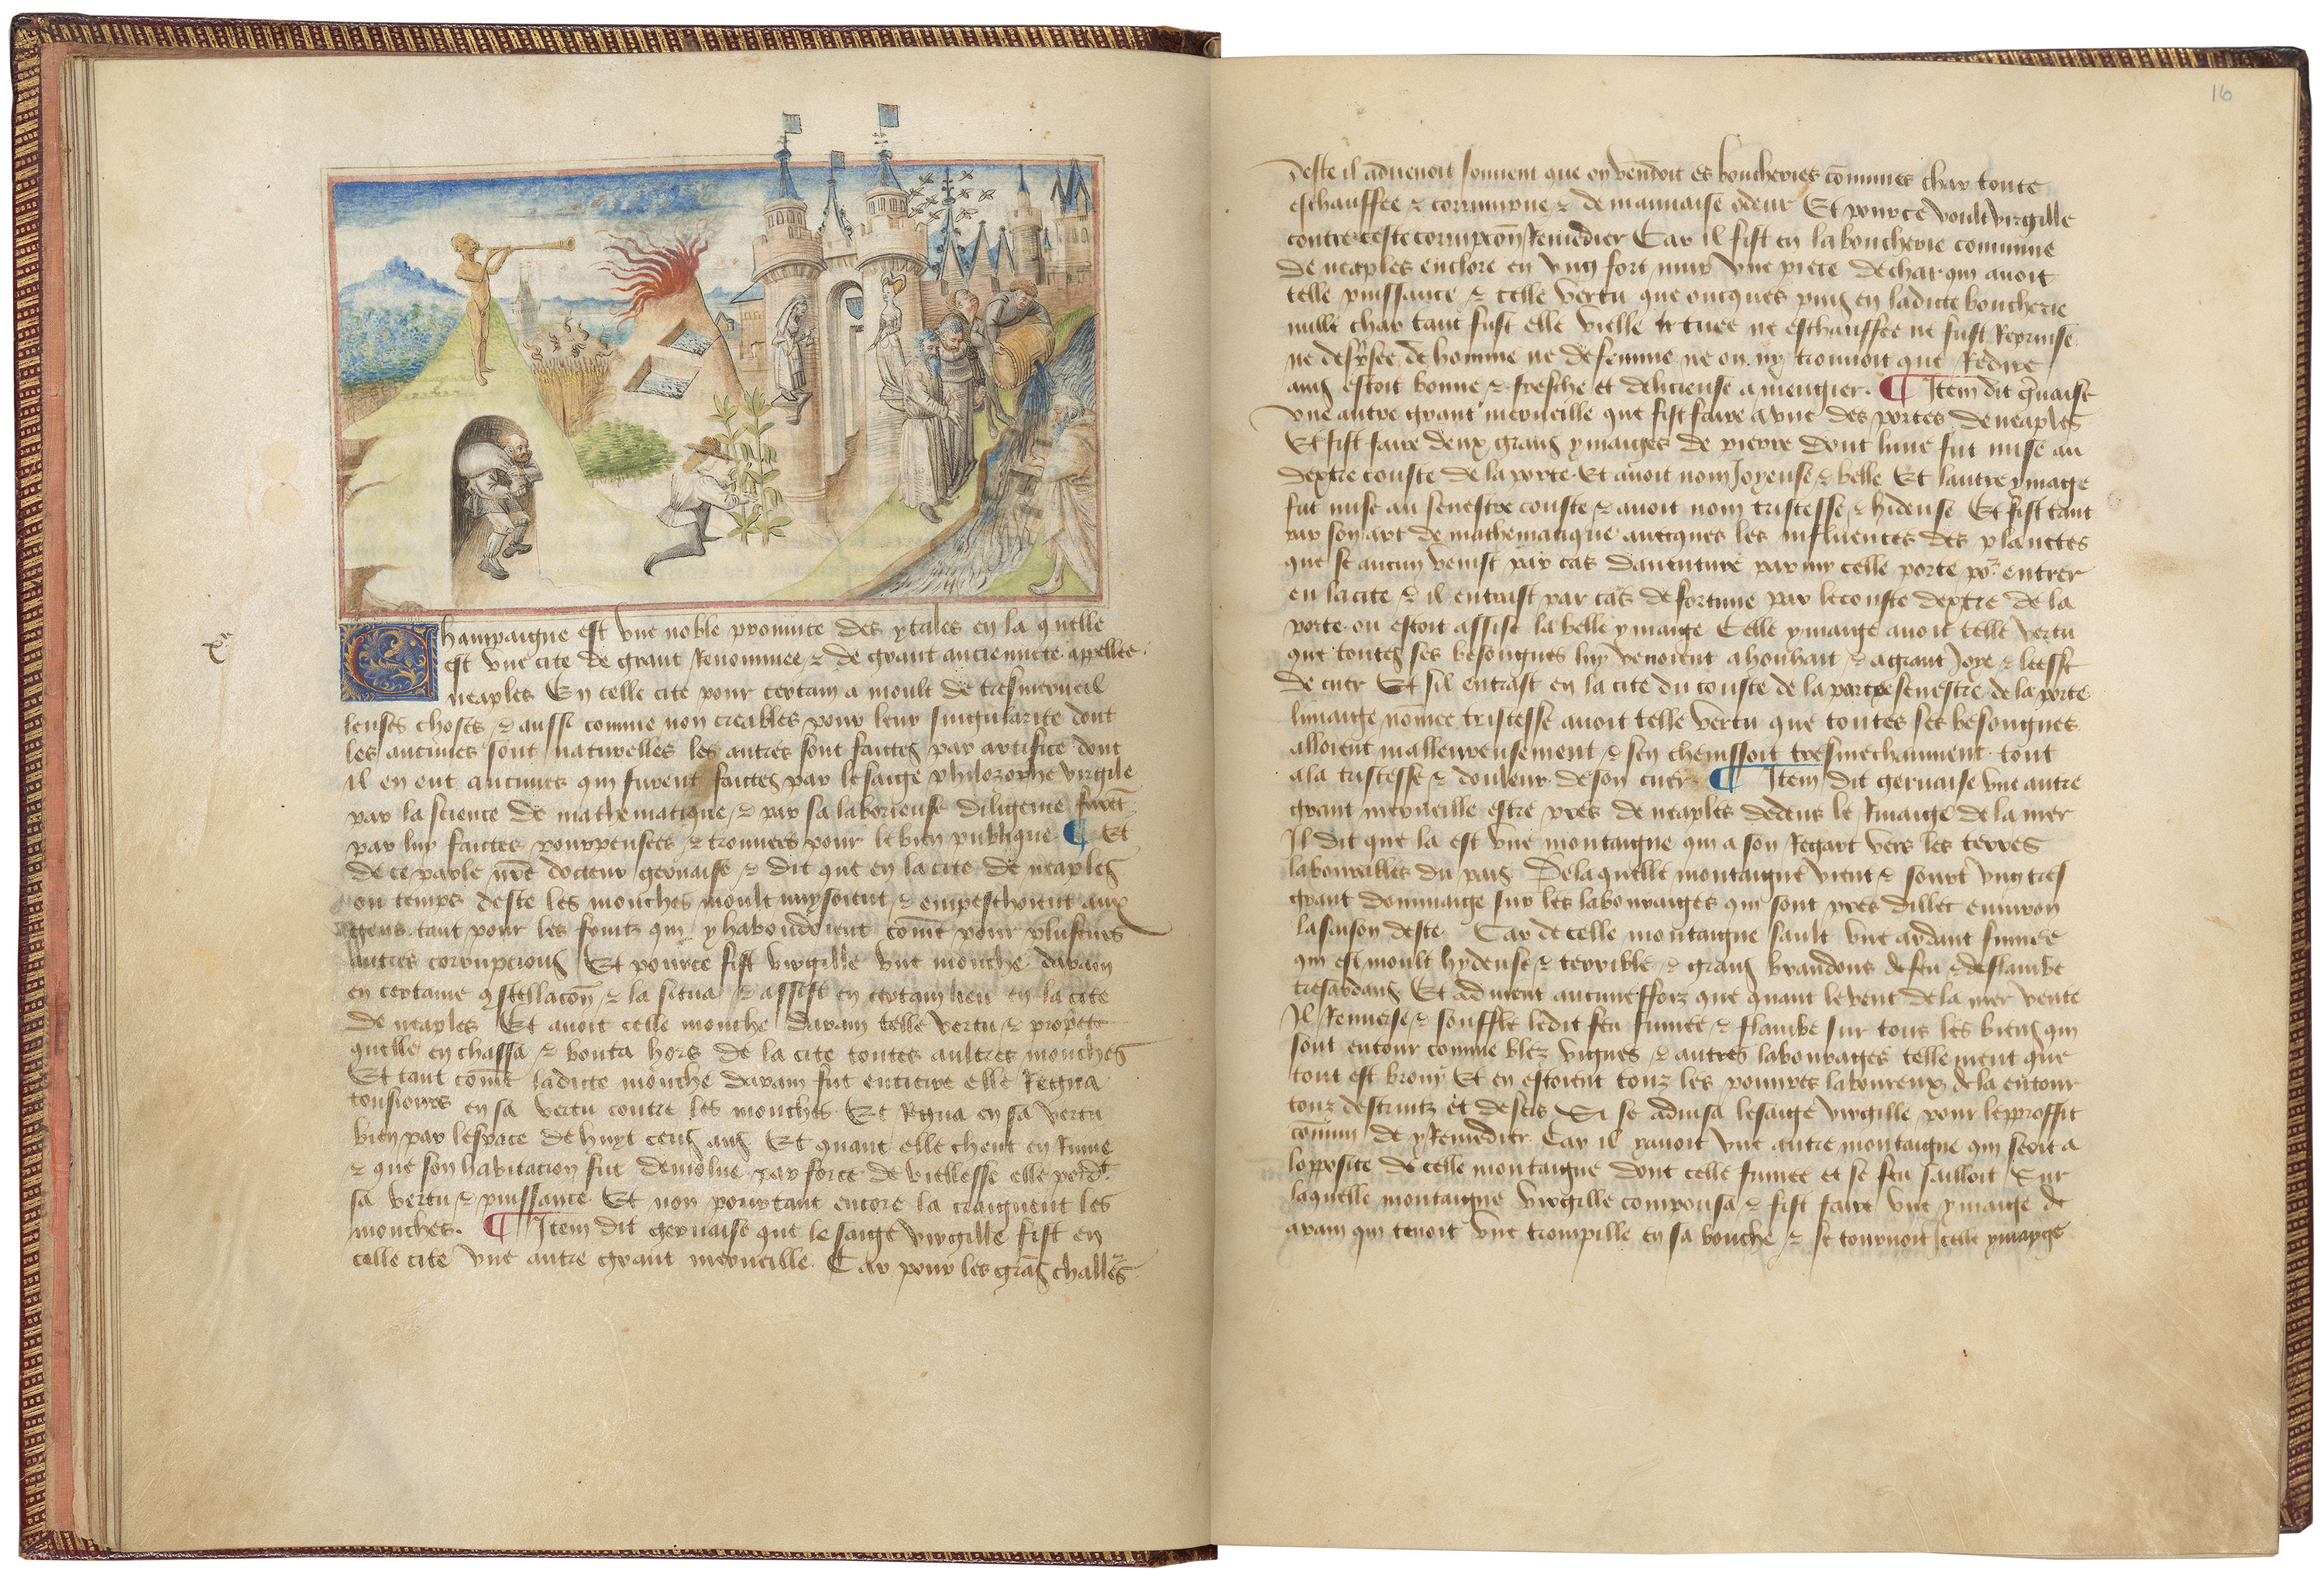 Champaigne est vne noble prouince des ytales en la quelle
est vne cite de grant Renommee & de grant anciennete appellee
neaples En celle cite pour certain a moult de tresmerueil
leuses choses & aussi comme non creables pour leur singularite dont
les aucunes sont naturelles les autres sont faictes par artifice dont
Il en eut aucunes qui furent faictes par le saige philozophe virgile
par la science de mathematique & par sa laborieuse diligence furēt
par luy faictes pourpensees & trouuees pour le bien publique ¶ Et
de ce parle nr̄e docteur geruaise & dit que en la cite de neaples
ou temps deste les mouches moult nuysoient & empeschoient aux
gens tant pour les fruitz qui y habondoient com̄e pour plusieurs
autres corrupcions Et pource fist virgille vne mouche darain
en certaine 9stellacōn & la situa & assist en certain lieu en la cite
de neaples Et auoit celle mouche darain telle vertu & prop̄ete
quelle en chassa & bouta hors de la cite toutes aultres mouches
Et tant com̄e ladicte mouche darain fut entiere elle Regna
tousiours en sa vertu contre les mouches Et Regna en sa vertu
bien par lespace de huyt cens ans Et quant elle cheut en Ruine
& que son habitacion fut demolue par force de viellesse elle perdt
sa vertu & puissance Et non pourtant encore la craignent les
mouches. ¶ Item dit geruaise que le saige virgille fist en
celle cite vne autre grant merueille Car pour les grās challrs
16
deste il aduenoit souuent que on vendoit es boucheries com̄unes char toute
eschauffee & corrumpue & de mauuaise odeur Et pource voult virgille
contre ceste corrupcōn Remedier Car il fist en la boucherie commune
de neaples enclore en vng fort mur vne piece de char qui auoit
telle puissance & telle vertu que oncques puis en ladicte boucherie
nulle char tant fust elle vielle tuee ne eschauffee ne fust Reprinse
ne desp̄see de homme ne de femme ne on ny trouuoit que Redire
ains estoit bonne & fresche et delicieuse a mengier. ¶ Item dit ḡuaise
vne autre grant merueille que fist faire a vne des portes de neaples
Et fist faire deux grans ymaiges de pierre dont lune fut mise au
dextre couste de la porte Et auoit nom Joyeuse & belle Et lautre ymage
fut mise au senestre couste & auoit nom tristesse & hideuse Et fist tant
par son art de mathematique auecques les influences des planetes
que se aucun venist par cas dauenture par my celle porte po2 entrer
en la cite & il entrast par cas de fortune par le couste dextre de la
porte ou estoit assise la belle ymaige Celle ymaige auoit telle vertu
que toutes ses besongnes luy venoient a souhait & a grant Joye & leesse
de cuer Et sil entrast en la cite du couste de la partie senestre de la porte
limaige nōmee tristesse auoit telle vertu que toutes ses besongnes
alloient malleureusement & sen cheuissoit tresmechaument tout
a la tristesse & douleur de son cuer ¶ Item dit geruaise vne autre
grant merueille estre pres de neaples dedens le Riuaige de la mer
Il dit que la est vne montaigne qui a son Regart vers les terres
labourables du pais De laquelle montaigne vient & sourt vng tres
grant dommaige sur les labouraiges qui sont pres dillec enuiron
la saison deste Car de celle montaigne sault vne ardant fumee
qui est moult hydeuse & terrible & grans brandons de feu & de flambe
tresardans Et aduient aucuneffoiz que quant le vent de la mer vente
Il Renuerse & souffle ledit feu fumee & flambe sur tous les biens qui
sont entour comme blez vignes & autres labourages tellement que
tout est brouy Et en estoient touz les pouures laboureux de la entour
touz destruitz et desers Si se aduisa le saige virgille pour le prouffit
cōmun de y Remedier Car il y auoit vne autre montaigne qui seoit a
lopposite de celle montaigne dont celle fumee et se feu sailloit Sur
laquelle montaigne virgille compousa & fist faire vne ymaige de
arain qui tenoit vne trompille en sa bouche & se tournoit Icelle ymayge